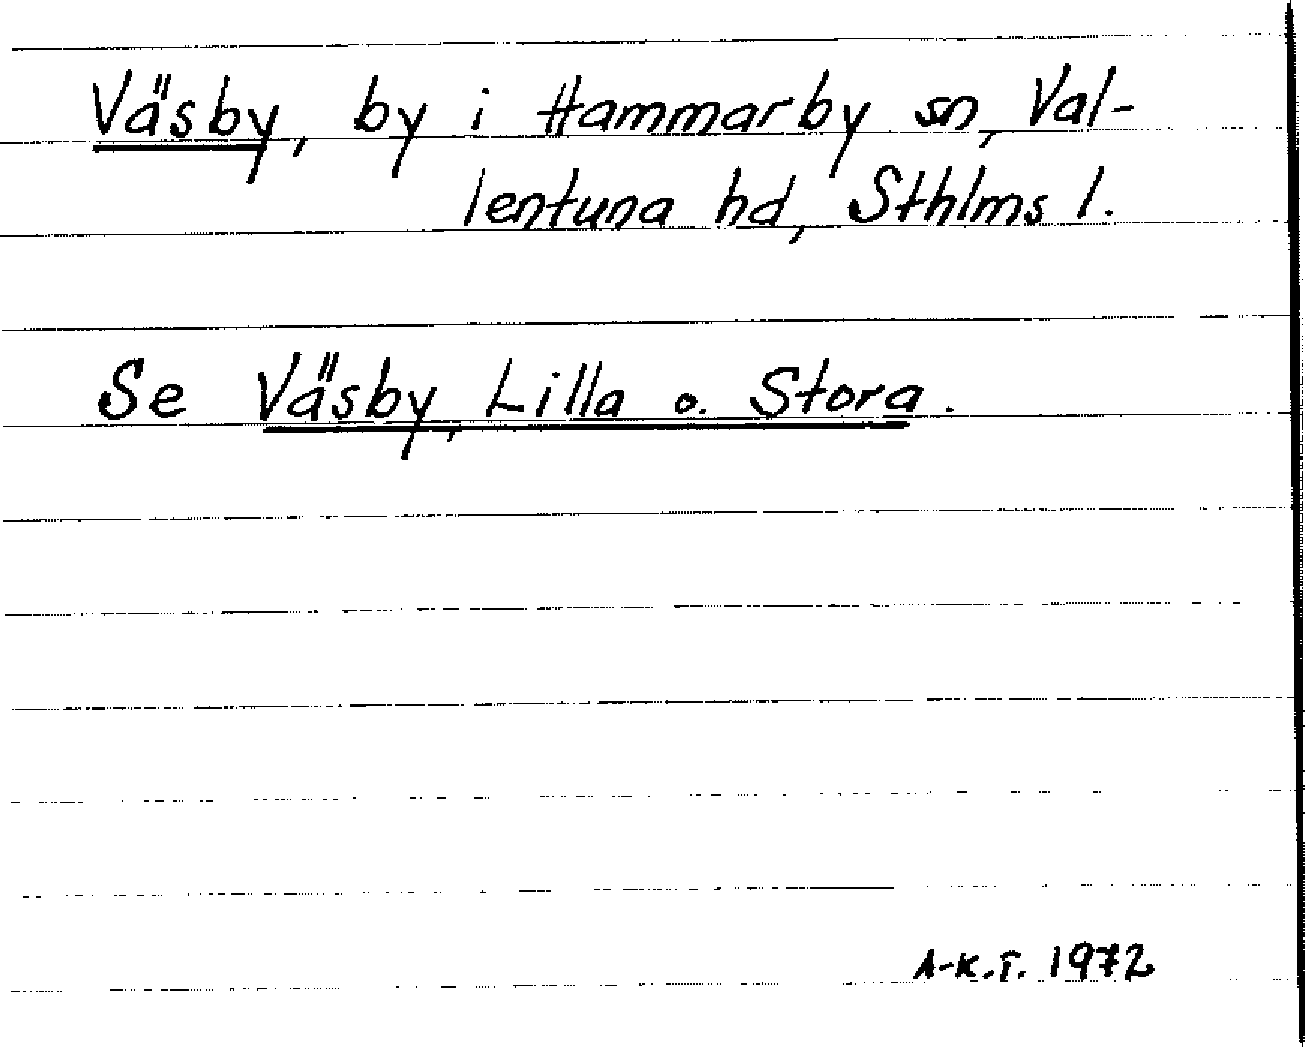 Väsby, by i Hammarby sn, Val-
lentuna hd, Sthlms l.
Se Väsby, Lilla o. Stora.
A-K.T. 1972